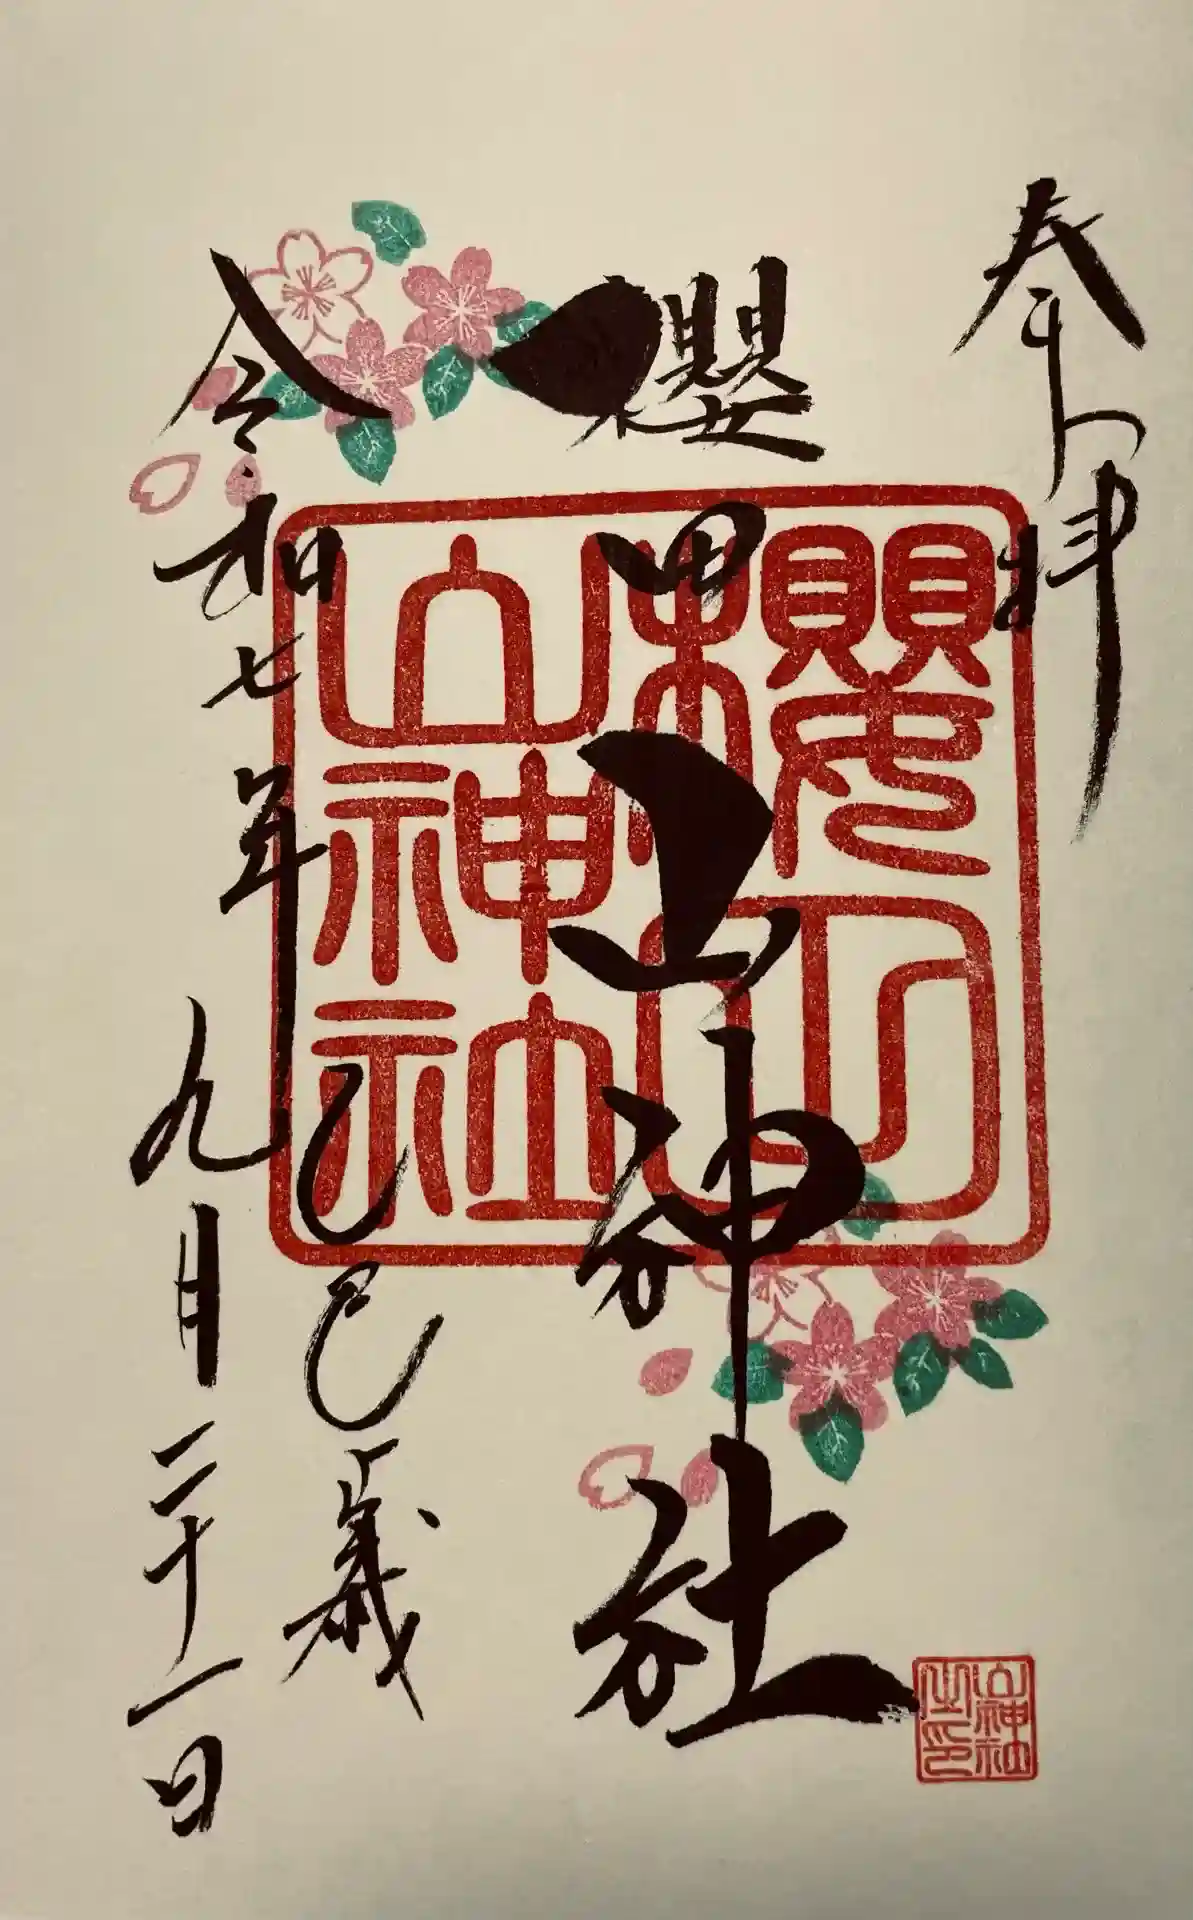 奉拝
櫻田山神社
令和七年
乙巳歳
九月二十一日
櫻
山神社
山神社
之印